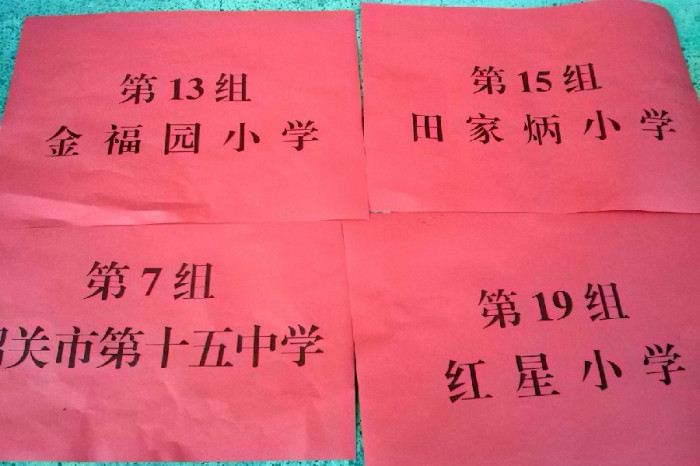 第13组
金福园小学
第15组
田家炳小学
第7组
韶关市第十五中学
第19组
红星小学